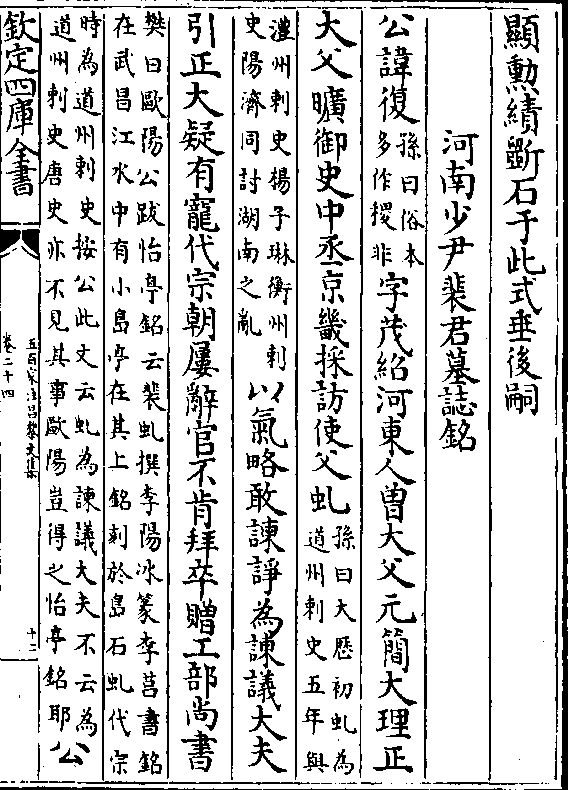 顯勲績斵石于此式垂後嗣
河南少尹裴君墓誌銘
公諱復孫曰俗本多作㮨非字茂紹河東人曽大父元簡大理正
大父曠御史中丞京畿採訪使父虬孫曰大厯初虬為道州刺史五年與
澧州刺史楊子琳衡州刺史陽濟同討湖南之亂以氣略敢諫諍為諫議大夫
引正大疑有寵代宗朝屢辭官不肯拜卒贈工部尚書
樊曰歐陽公跋怡亭銘云裴虬撰李陽冰篆李莒書銘在武昌江水中有小島亭在其上銘刻於島石虬代宗
時為道州刺史按公此文云虬為諫議大夫不云為道州刺史唐史亦不見其事歐陽豈得之怡亭銘耶公
欽定四庫全書
五百家注昌黎文集
卷二十四
十二